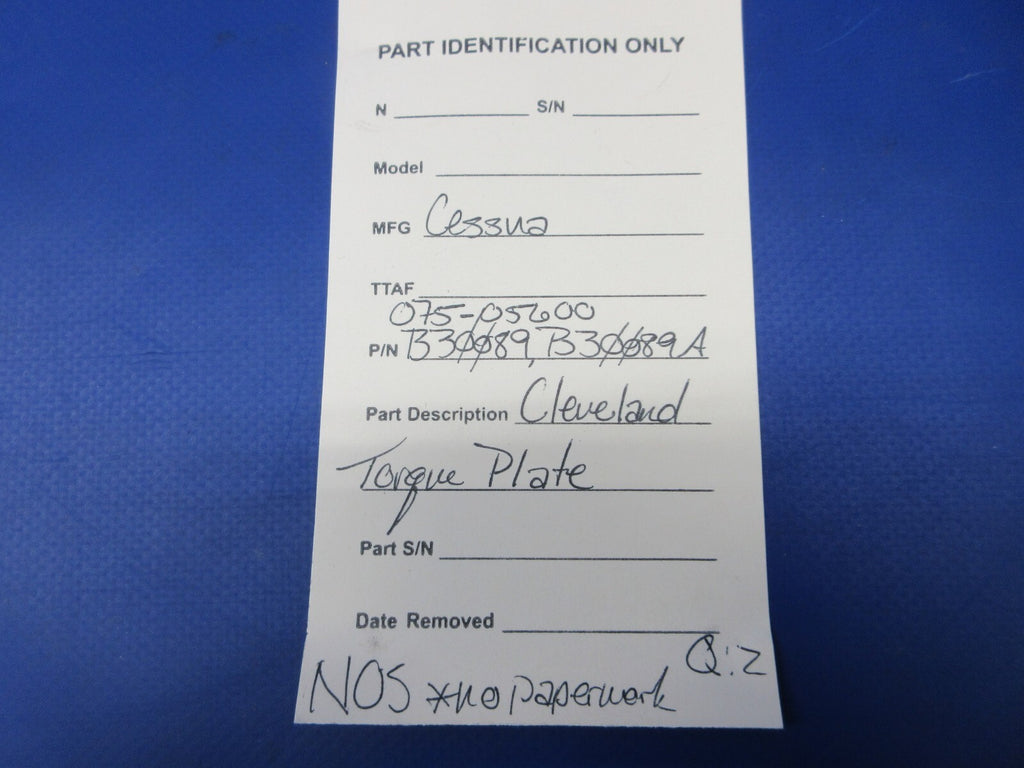 PART IDENTIFICATION ONLY
N S/N
Model
MFG Cessna
TTAF
075-05600
P/N B30089, B30089A
Part Description Cleveland
Torque Plate
Part S/N
Date Removed
Q:2
NOS *no paperwork